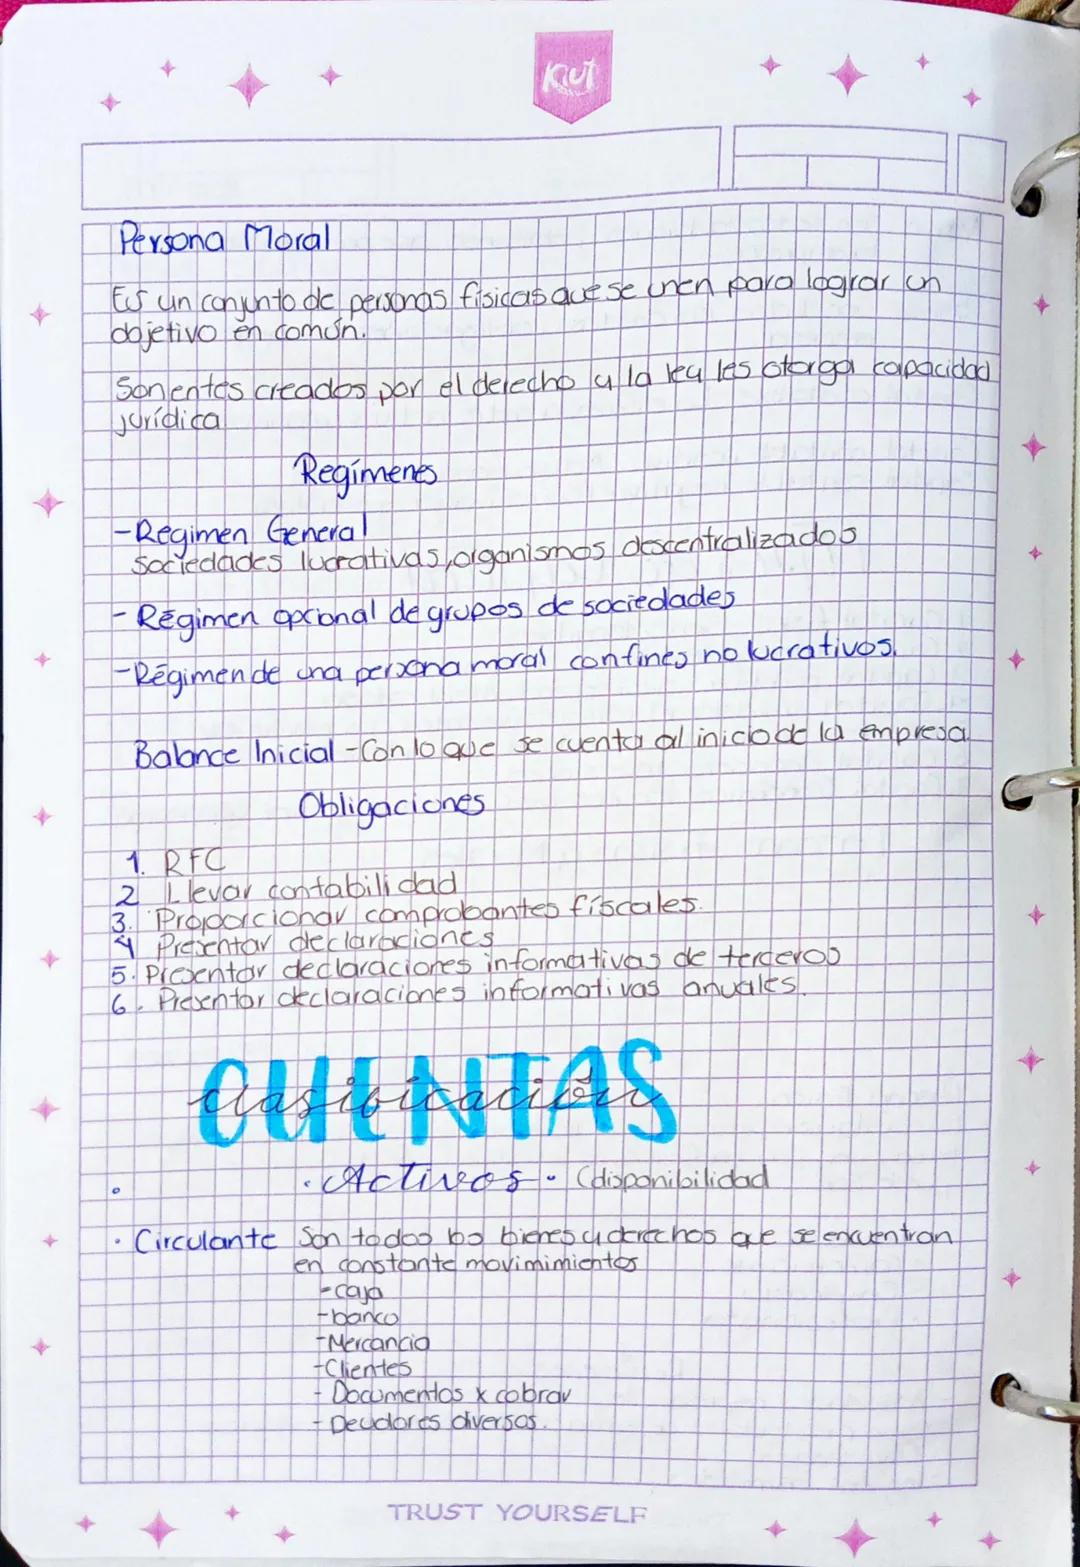 Kiut
Persona Moral
Es un conjunto de personas físicas que se unen para lograr un
objetivo en común.
Son entes creados por el derecho y la ley les otorga capacidad
jurídica
Regímenes
-Régimen General
sociedades lucrativas, organismos descentralizados
- Régimen opcional de grupos de sociedades
-Régimen de una persona moral con fines no lucrativos.
Balance Inicial - Con lo que se cuenta al inicio de la empresa
Obligaciones
1. RFC
2 Llevar contabilidad
3. Proporcionar comprobantes fiscales.
4 Presentar declaraciones
5. Presentar declaraciones informativas de terceros
6. Presentar declaraciones informativas anuales.
CUENTAS
clasificación
· Activos · (disponibilidad
· Circulante Son todos los bienes y derechos que se encuentran
en constante movimimientos
- caja
- banco
- Mercancia
- Clientes
- Documentos x cobrar
- Deudores diversos.
TRUST YOURSELF